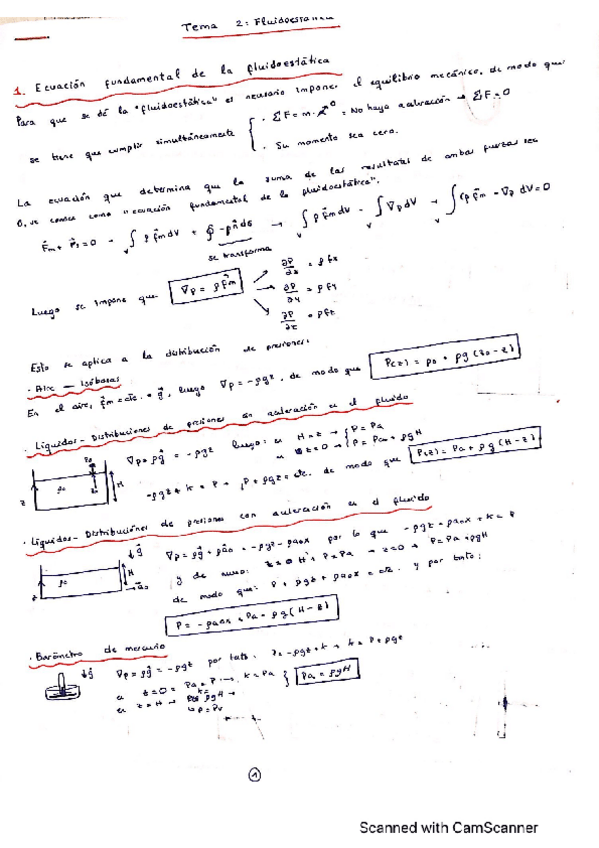 Tema 2: Fluidoestática
1. Ecuación fundamental de la fluidoestática
Para que se dé la "fluidoestática" es necesario imponer el equilibrio mecánico, de modo que
se tiene que cumplir simultáneamente { · ΣF = m·a⁰ = No haya aceleración → ΣF = 0
· Su momento sea cero.
La ecuación que determina que la suma de las resultates de ambas fuerzas sea
0, se conoce como "ecuación fundamental de la fluidoestática".
F̄m + F̄s = 0 → ∫ ρ f̄m dV + ∮ -p n̄ dσ → ∫ ρ f̄m dV - ∫ ∇p dV → ∫ (ρ f̄m - ∇p) dV = 0
se transforma
Luego se impone que ∇p = ρ f̄m
∂P/∂x = ρ fx
∂P/∂y = ρ fy
∂P/∂z = ρ fz
Esto se aplica a la distribución de presiones:
· Aire — Isóbaras
En el aire, f̄m = cte. = ḡ, luego ∇p = -ρgz, de modo que P(z) = p₀ + ρg(z₀ - z)
· Líquidos - Distribuciones de presiones sin aceleración en el fluido
∇p = ρḡ = -ρgz luego: en H = z → P = Pa
en z = 0 → P = Pa + ρgH
-ρgz + k = P → P + ρgz = cte. de modo que P(z) = Pa + ρg(H - z)
· Líquidos - Distribuciones de presiones con aceleración en el fluido
∇p = ρḡ + ρā₀ = -ρgz - ρa₀x por lo que -ρgz - ρa₀x + k = P
de modo que: P + ρgz + ρa₀x = cte. y por tanto:
P = -ρa₀x + Pa + ρg(H - z)
· Barómetro de mercurio
∇p = ρḡ = -ρgz por tato.
Pa = ρgH
1
Scanned with CamScanner